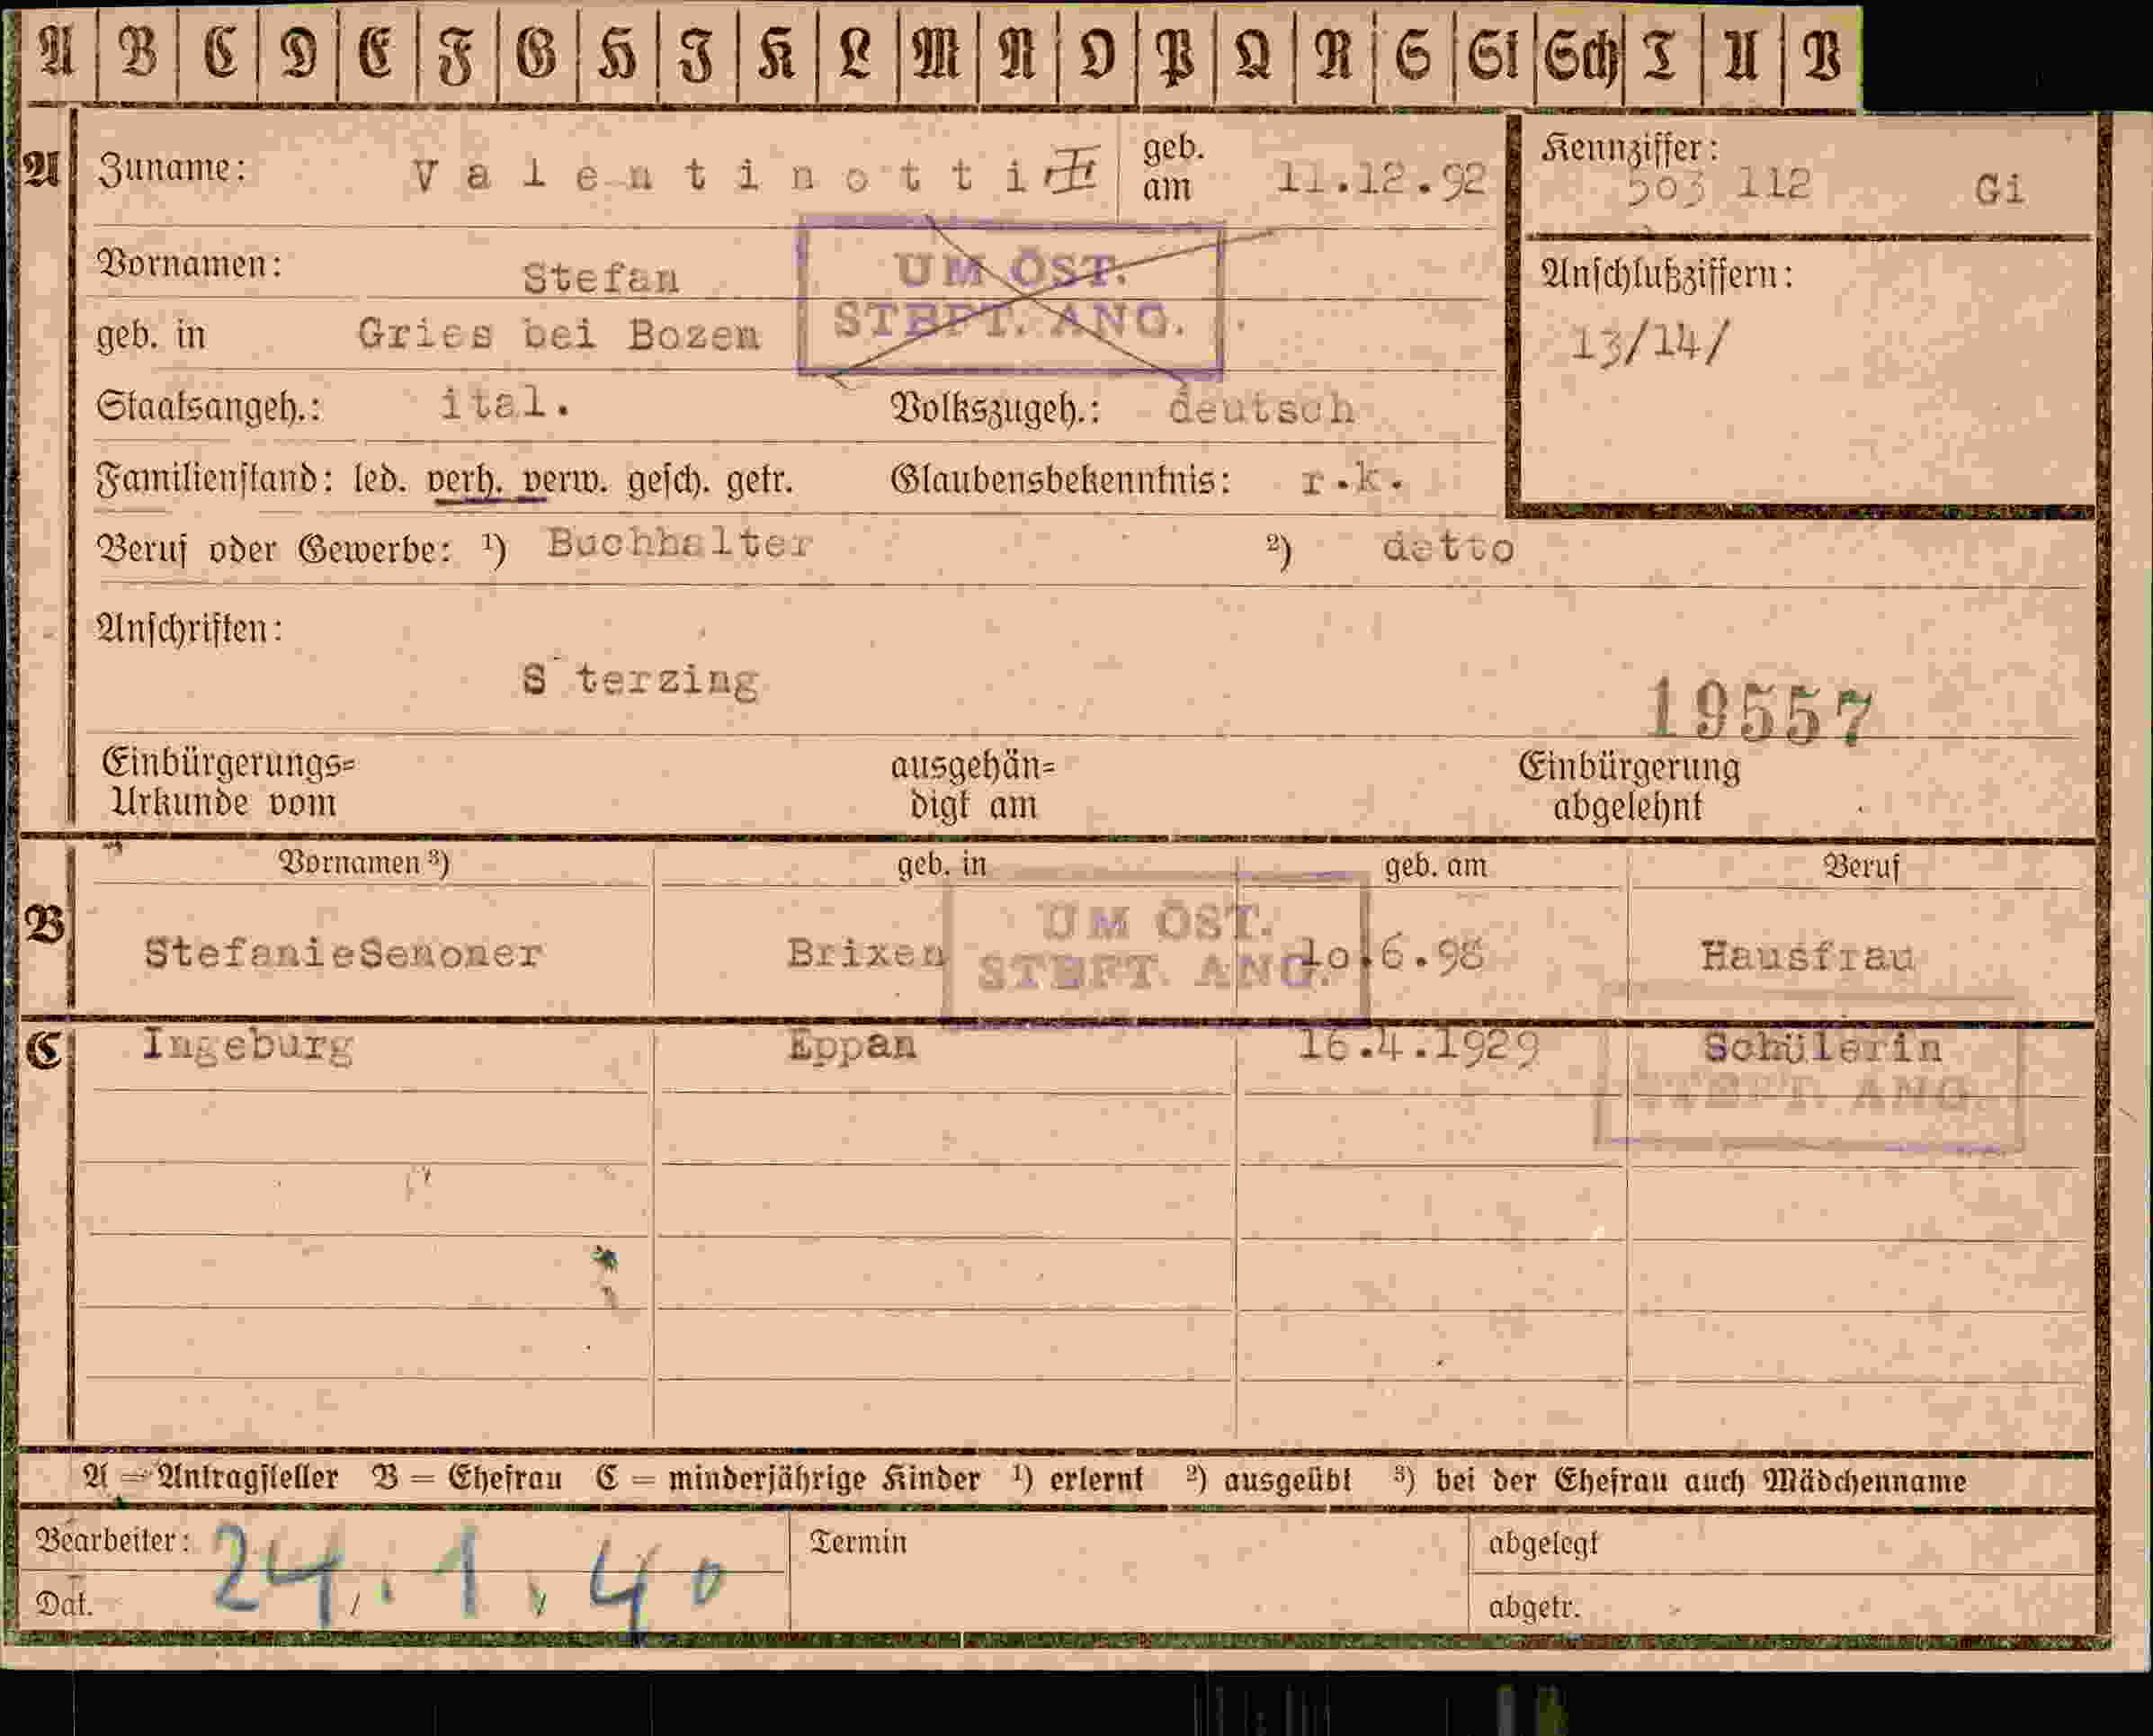 A B C D E F G H I K L M N O P Q R S St Sch T U V
A Zuname: Valentinotti geb. am 11.12.92 Kennziffer: 503 112 Gi
Vornamen: Stefan
UM ÖST. STBFT. ANG.
Anschlußziffern:
geb. in Gries bei Bozen
13/14/
Staatsangeh.: ital. Volkszugeh.: deutsch
Familienstand: led. verh. verw. gesch. getr. Glaubensbekenntnis: r.k.
Beruf oder Gewerbe: ¹) Buchhalter ²) detto
Anschriften:
S terzing
19557
Einbürgerungs= ausgehän= Einbürgerung
Urkunde vom digt am abgelehnt
Vornamen ³) geb. in geb. am Beruf
UM ÖST.
STBFT. ANG.
B StefanieSenoner Brixen 10.6.98 Hausfrau
C Ingeburg Eppan 16.4.1929 Schülerin
STBFT. ANG.
A = Antragsteller B = Ehefrau C = minderjährige Kinder ¹) erlernt ²) ausgeübt ³) bei der Ehefrau auch Mädchenname
Bearbeiter: Termin abgelegt
24.1.40
Dat. abgetr.